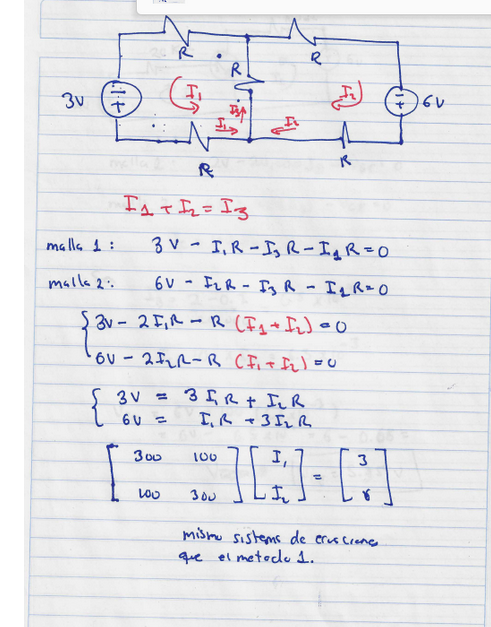 R
R
R
3V
I1
I2
6V
I3
I1
I2
R
R
I1 + I2 = I3
malla 1: 3V - I1R - I3R - I1R = 0
malla 2: 6V - I2R - I3R - I2R = 0
3V - 2I1R - R (I1 + I2) = 0
6V - 2I2R - R (I1 + I2) = 0
3V = 3I1R + I2R
6V = I1R + 3I2R
300 100 I1 = 3
100 300 I2 6
mismo sistema de ecuaciones
que el metodo 1.